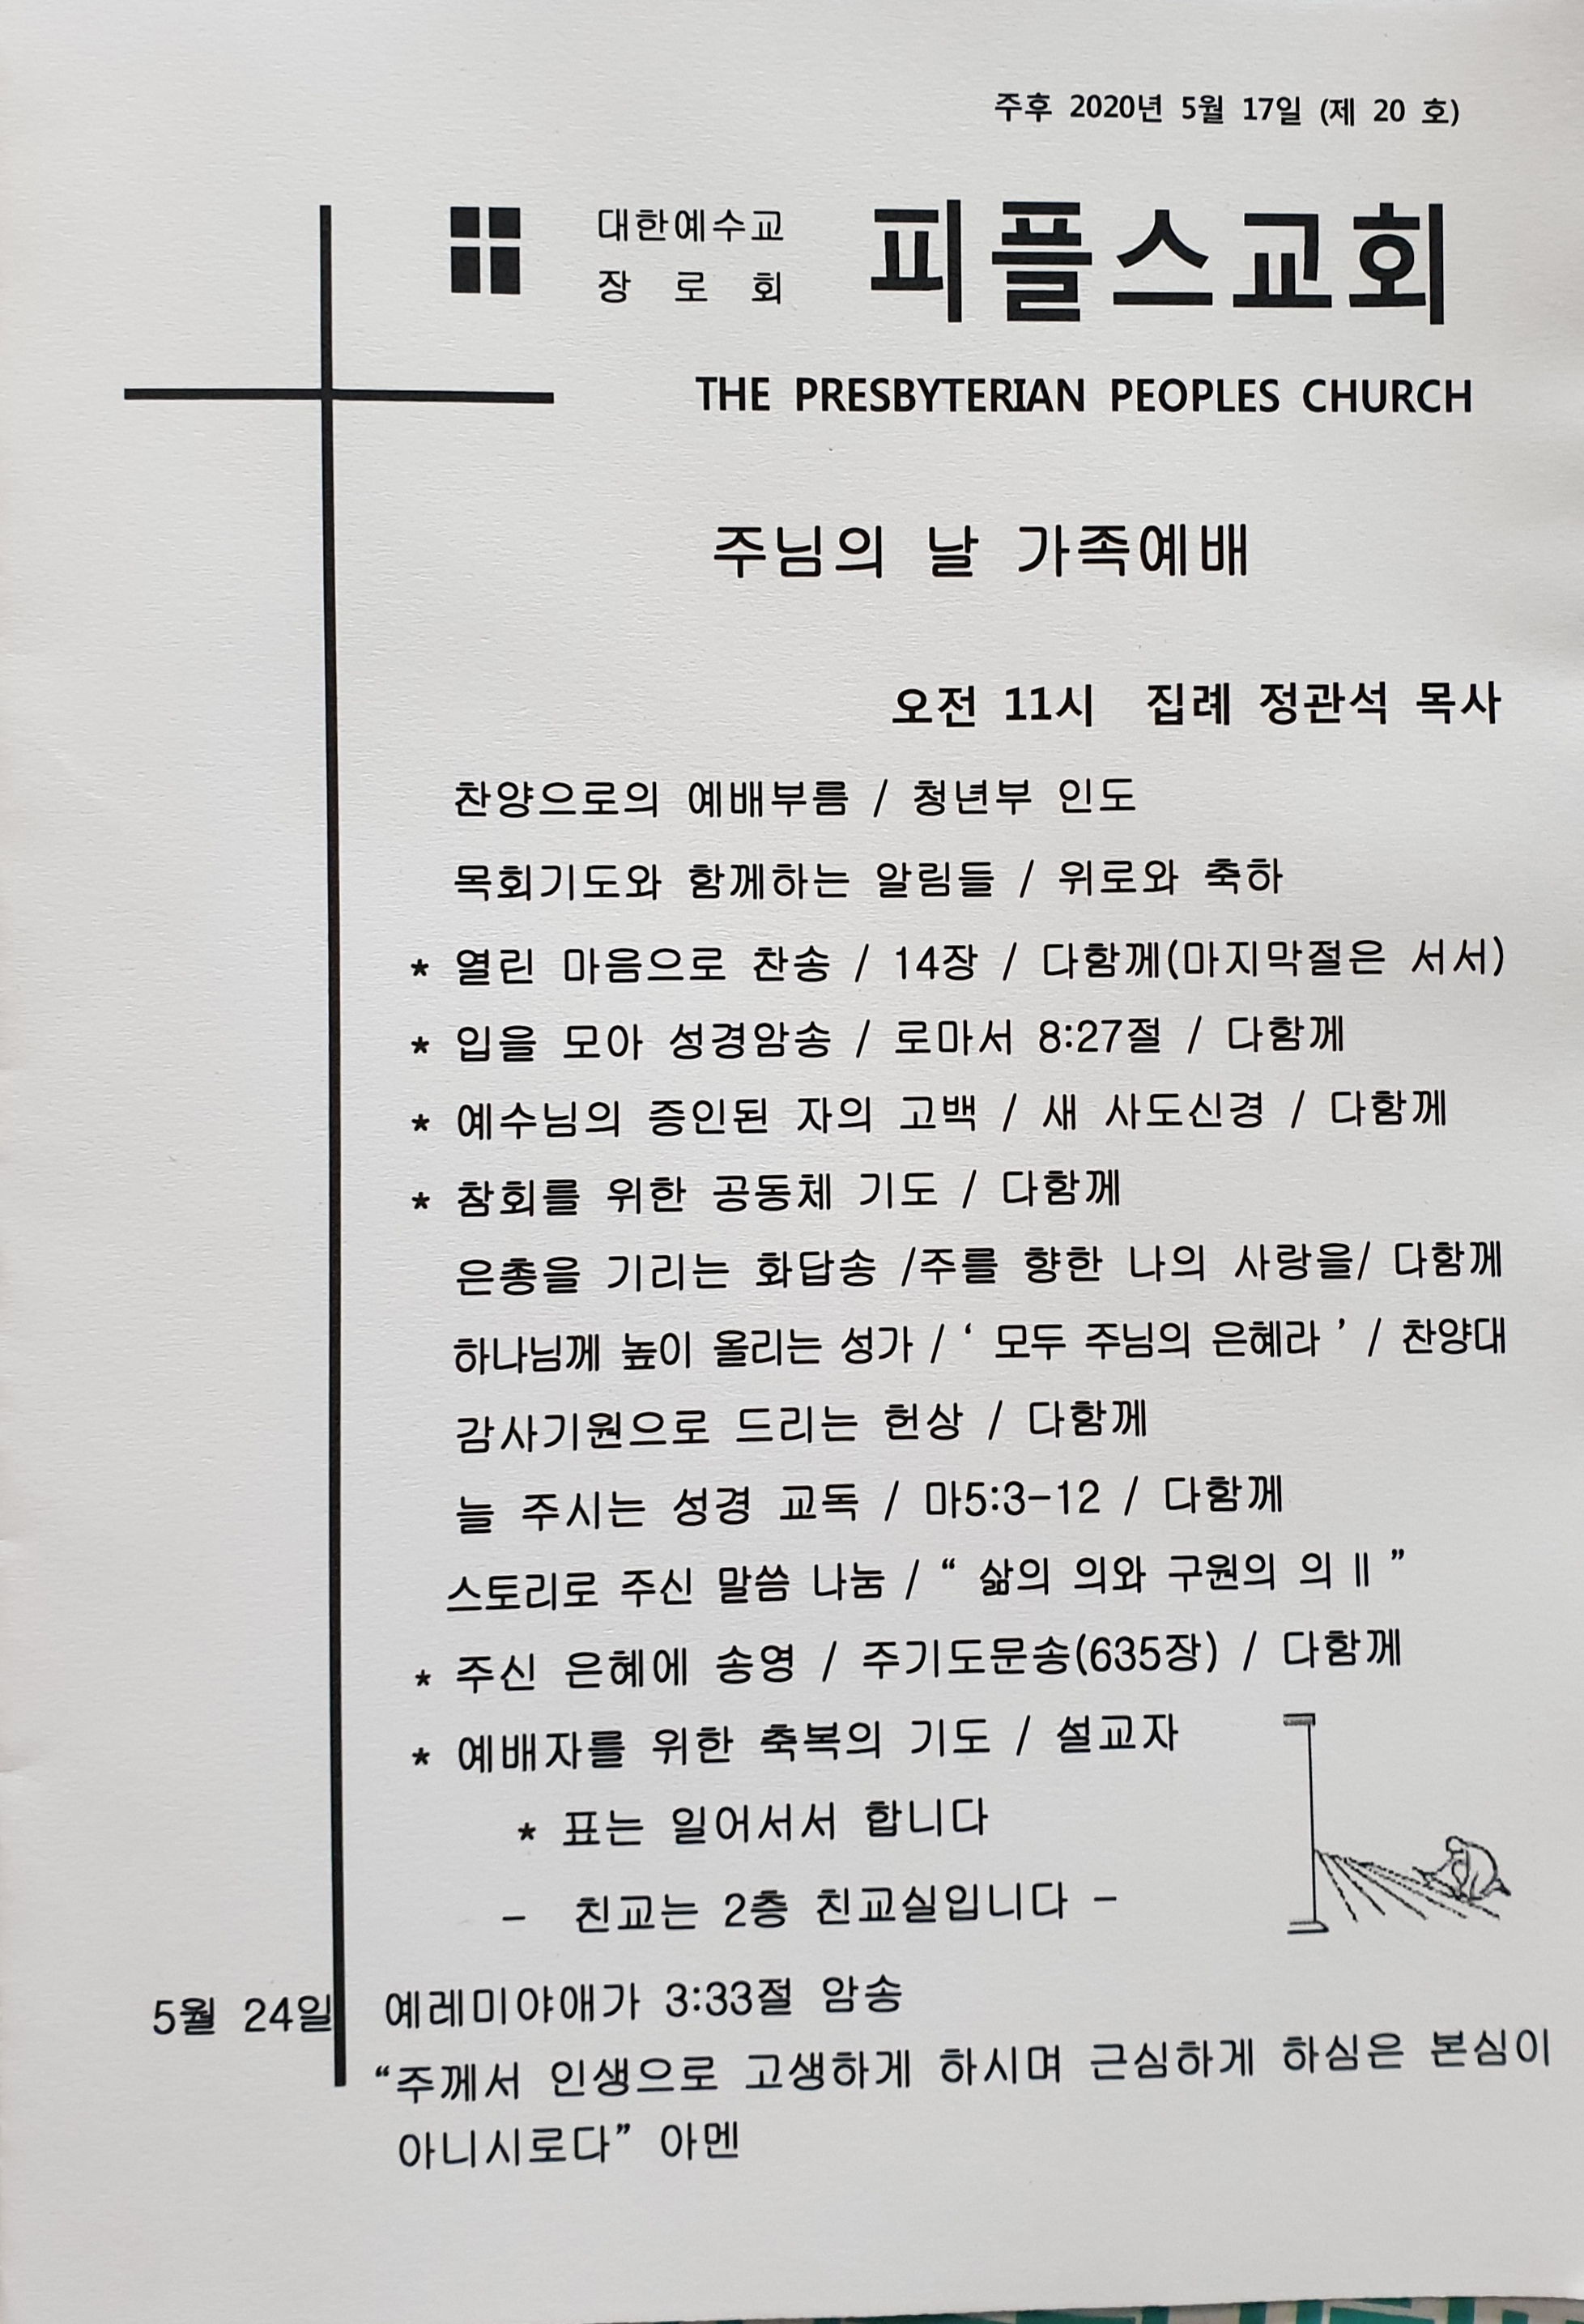 주후 2020년 5월 17일 (제 20 호)
대한예수교
장 로 회
피플스교회
THE PRESBYTERIAN PEOPLES CHURCH
주님의 날 가족예배
오전 11시 집례 정관석 목사
찬양으로의 예배부름 / 청년부 인도
목회기도와 함께하는 알림들 / 위로와 축하
* 열린 마음으로 찬송 / 14장 / 다함께(마지막절은 서서)
* 입을 모아 성경암송 / 로마서 8:27절 / 다함께
* 예수님의 증인된 자의 고백 / 새 사도신경 / 다함께
* 참회를 위한 공동체 기도 / 다함께
은총을 기리는 화답송 /주를 향한 나의 사랑을/ 다함께
하나님께 높이 올리는 성가 / ‘ 모두 주님의 은혜라 ’ / 찬양대
감사기원으로 드리는 헌상 / 다함께
늘 주시는 성경 교독 / 마5:3-12 / 다함께
스토리로 주신 말씀 나눔 / “ 삶의 의와 구원의 의 Ⅱ ”
* 주신 은혜에 송영 / 주기도문송(635장) / 다함께
* 예배자를 위한 축복의 기도 / 설교자
* 표는 일어서서 합니다
- 친교는 2층 친교실입니다 -
5월 24일 예레미야애가 3:33절 암송
“주께서 인생으로 고생하게 하시며 근심하게 하심은 본심이
아니시로다” 아멘